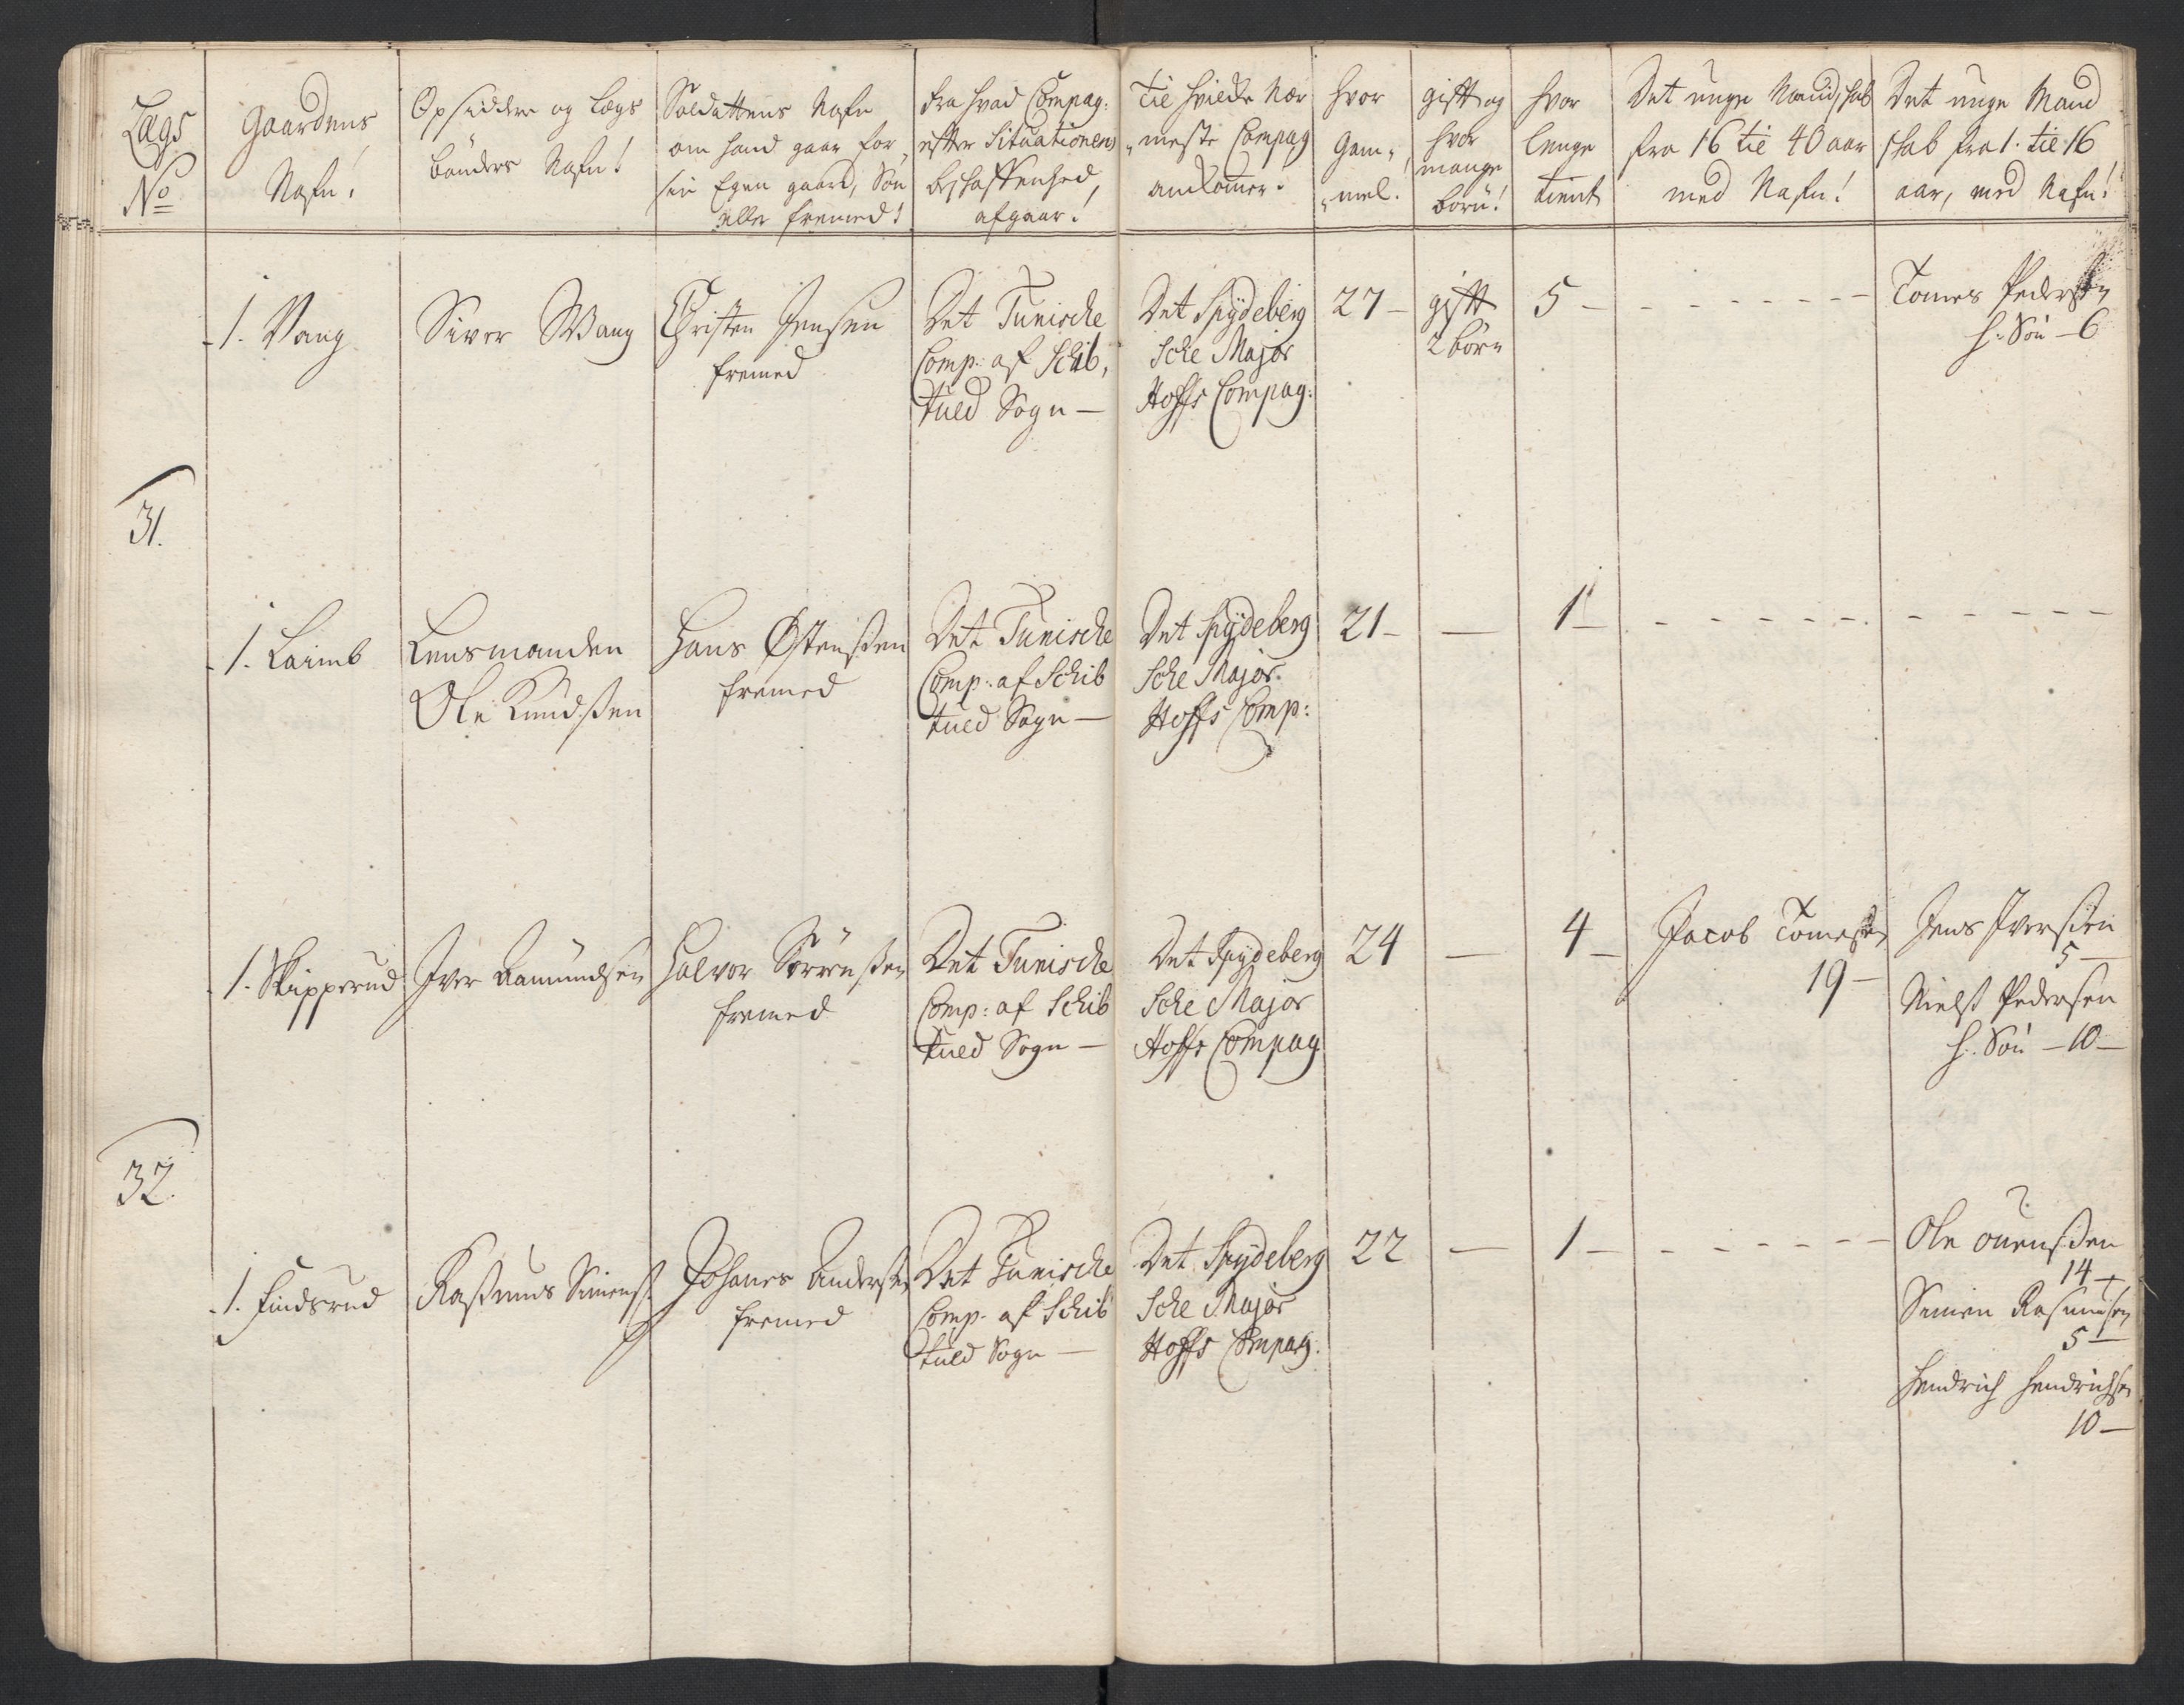 Lægs
No
Gaardens
Nafn!
Opsiddere og Lægs
bönders Nafn!
Soldattens Nafn
om hand gaar for
sin Egen gaard, Søn
eller fremed!
fra hvad Compag:
efter Situationens
beskaffenhed,
afgaar!
Til hvilcke Nær
meste Compag
ankommer.
hvor
Gam„
„mel.
gift og
hvor
mange
börn!
hvor
lenge
tient
Det unge Mandskab
fra 16 til 40 aar
med Nafn!
Det unge Mand
skab fra 1. til 16
aar, med Nafn!
1. Vang
Siver Wang
Christen Jensen
fremed
Det Tunische
Comp: af Schib,
tued Sogn —
Det Spydeberg
Sche Major
Hoffs Compag:
27 —
gift
2 börn
5 —
Tomes Pedersen
h: Søn — 6
31.
1. Laimb
Lensmanden
Ole Knudsen
Hans Østensen
fremed
Det Tunische
Comp: af Schib
tued Sogn —
Det Spydeberg
Sche Major
Hoffs Comp:
21 —
—
1 —
1. Skipperud
Iver Amundsen
Halvor Sørrensen
fremed
Det Tunische
Comp: af Schib
tued Sogn —
Det Spydeberg
Sche Major
Hoffs Compag
24
—
4 —
Jacob Tomesen
19 —
Jens Iversen
5 —
Niels Pedersen
h: Søn — 10 —
32.
1. Findsrud
Rasmus Simens:
Johanes Andersen
fremed
Det Tunische
Comp. af Schib
tued Sogn —
Det Spydeberg
Sche Major
Hoffs Compag:
22
—
1 —
Ole ouensen
14 +
Simen Rasmusen
5 —
Hendrich Hendrichsen
10 —